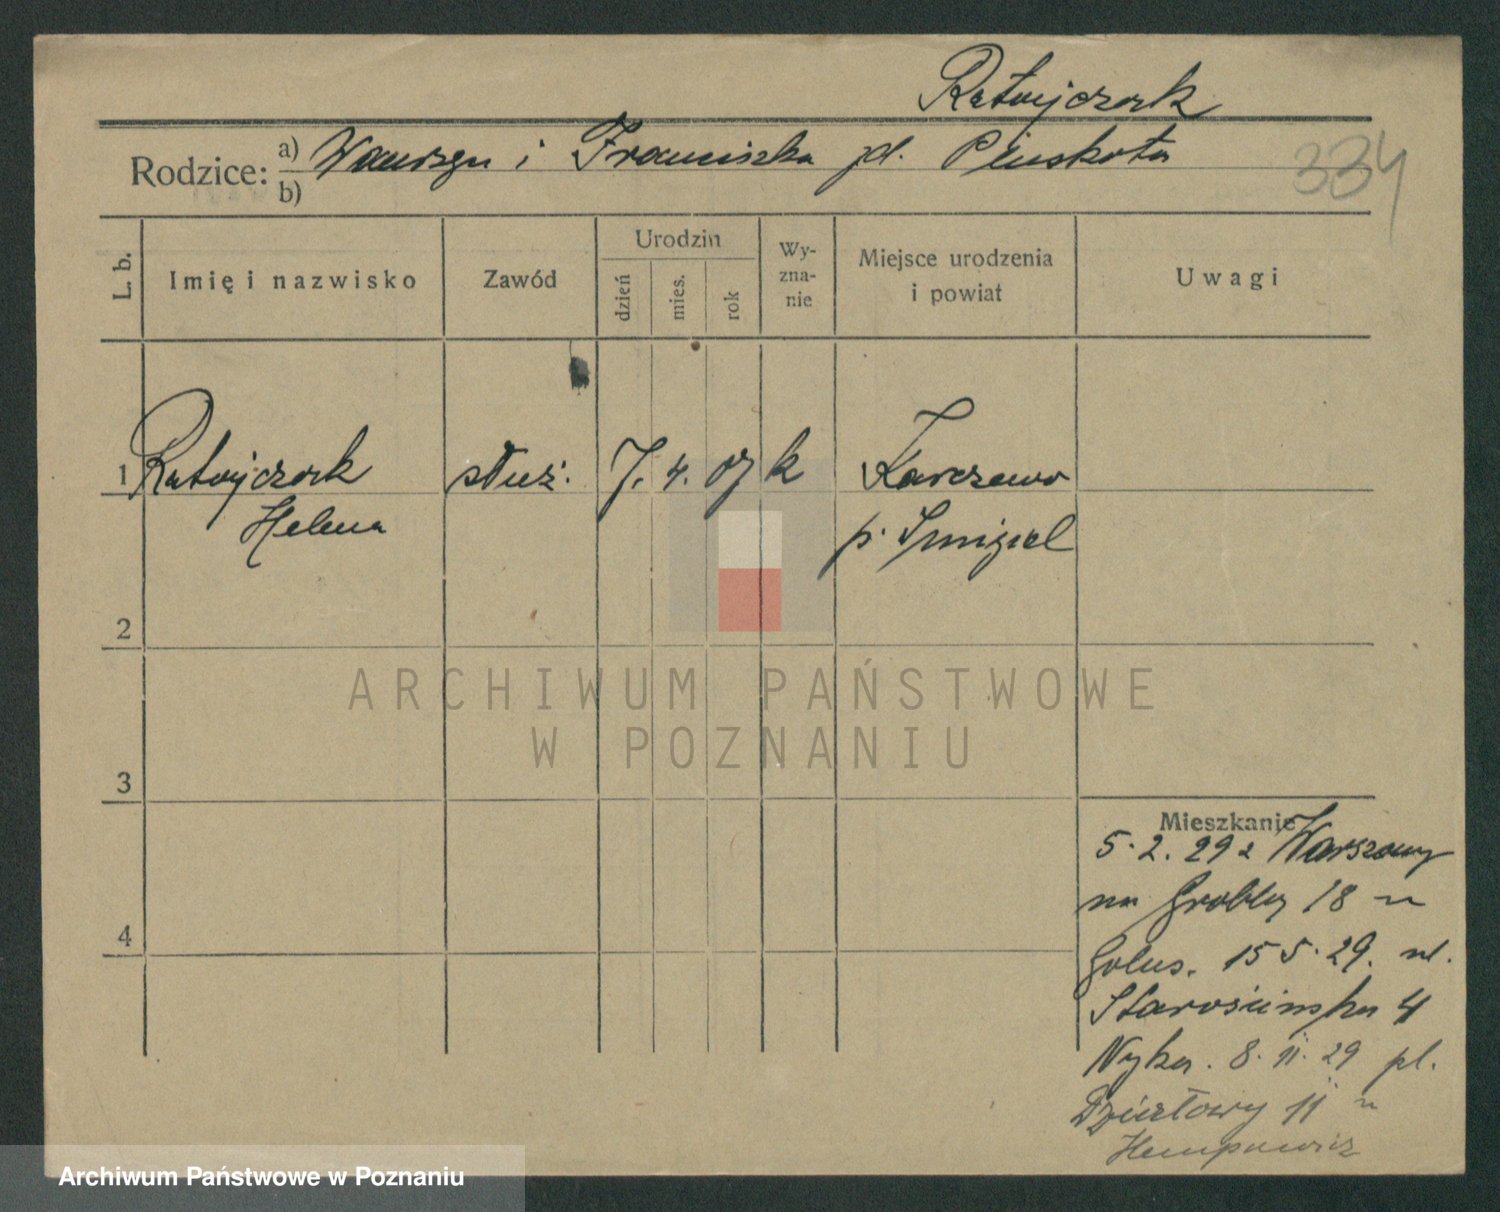 Ratajczak
Rodzice: a) Wawrzyn i Franciszka zd. Pluskota
b)
334
L. b.
Imię i nazwisko
Zawód
Urodzin
dzień
mies.
rok
Wy-
zna-
nie
Miejsce urodzenia
i powiat
Uwagi
1 Ratajczak służ. 7. 4. 07 k Karczewo
Helena p. Śmigiel
2
3
4
ARCHIWUM PAŃSTWOWE
W POZNANIU
Mieszkanie
5. 2. 29 z Warszawy
na Grobly 18 u
15 5. 29. ul.
Starościńska 4
Nyka. 8. 11. 29 pl.
Działowy 11 u
Archiwum Państwowe w Poznaniu